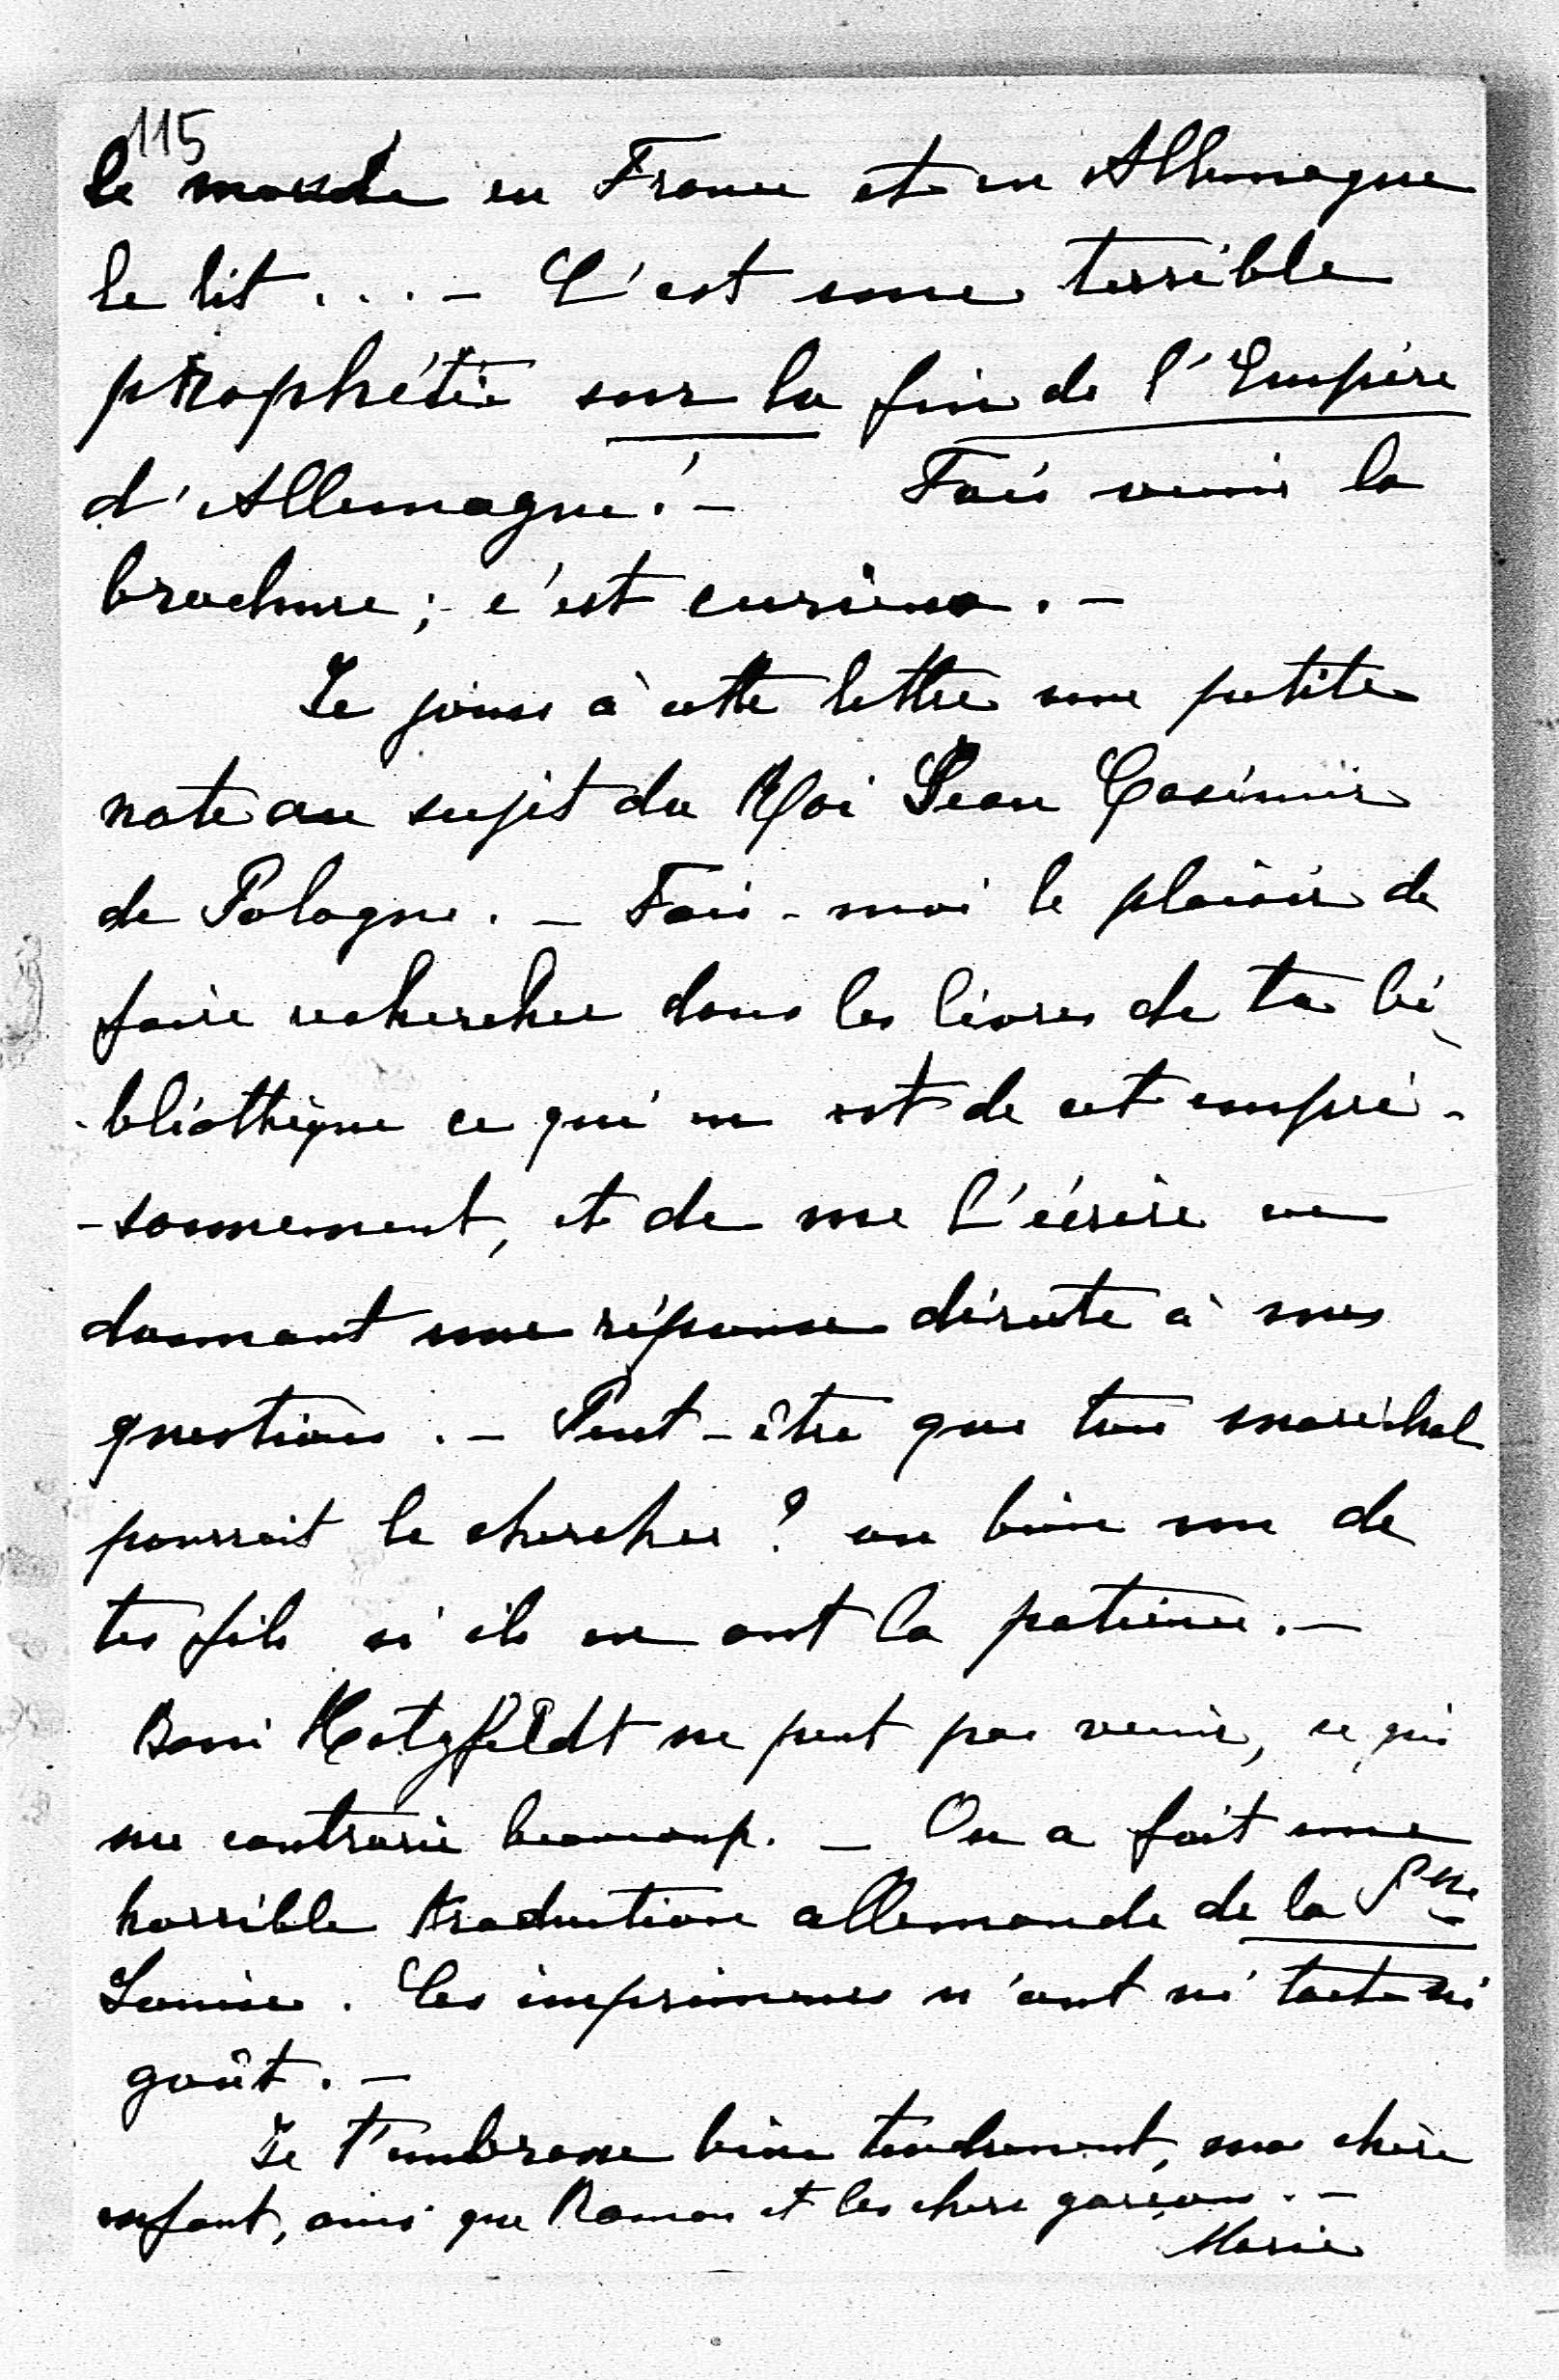 115
le monde en France et en Allemagne
le lit . . . - C'est une terrible
prophétie sur la fin de l'Empire
d'Allemagne! - Fais venir la
brochure; c'est curieux. -
Je joins à cette lettre une petite
note au sujet du Roi Jean Casimir
de Pologne. - Fais-moi le plaisir de
faire rechercher dans les livres de ta bi-
-bliothèque ce qui en est de cet empri-
-sonnement, et de me l'écrire en
donnant une réponse directe à mes
questions. - Peut-être que ton maréchal
pourrait le chercher? ou bien un de
tes fils si ils en ont la patience. -
Boni Hatzfeldt ne peut pas venir, ce qui
me contrarie beaucoup. - On a fait une
horrible traduction allemande de la Psse
Louise. Ces imprimeurs n'ont ni tact ni
goût. -
Je t'embrasse bien tendrement, ma chère
enfant, ainsi que Roman et les chers garçons. -
Marie